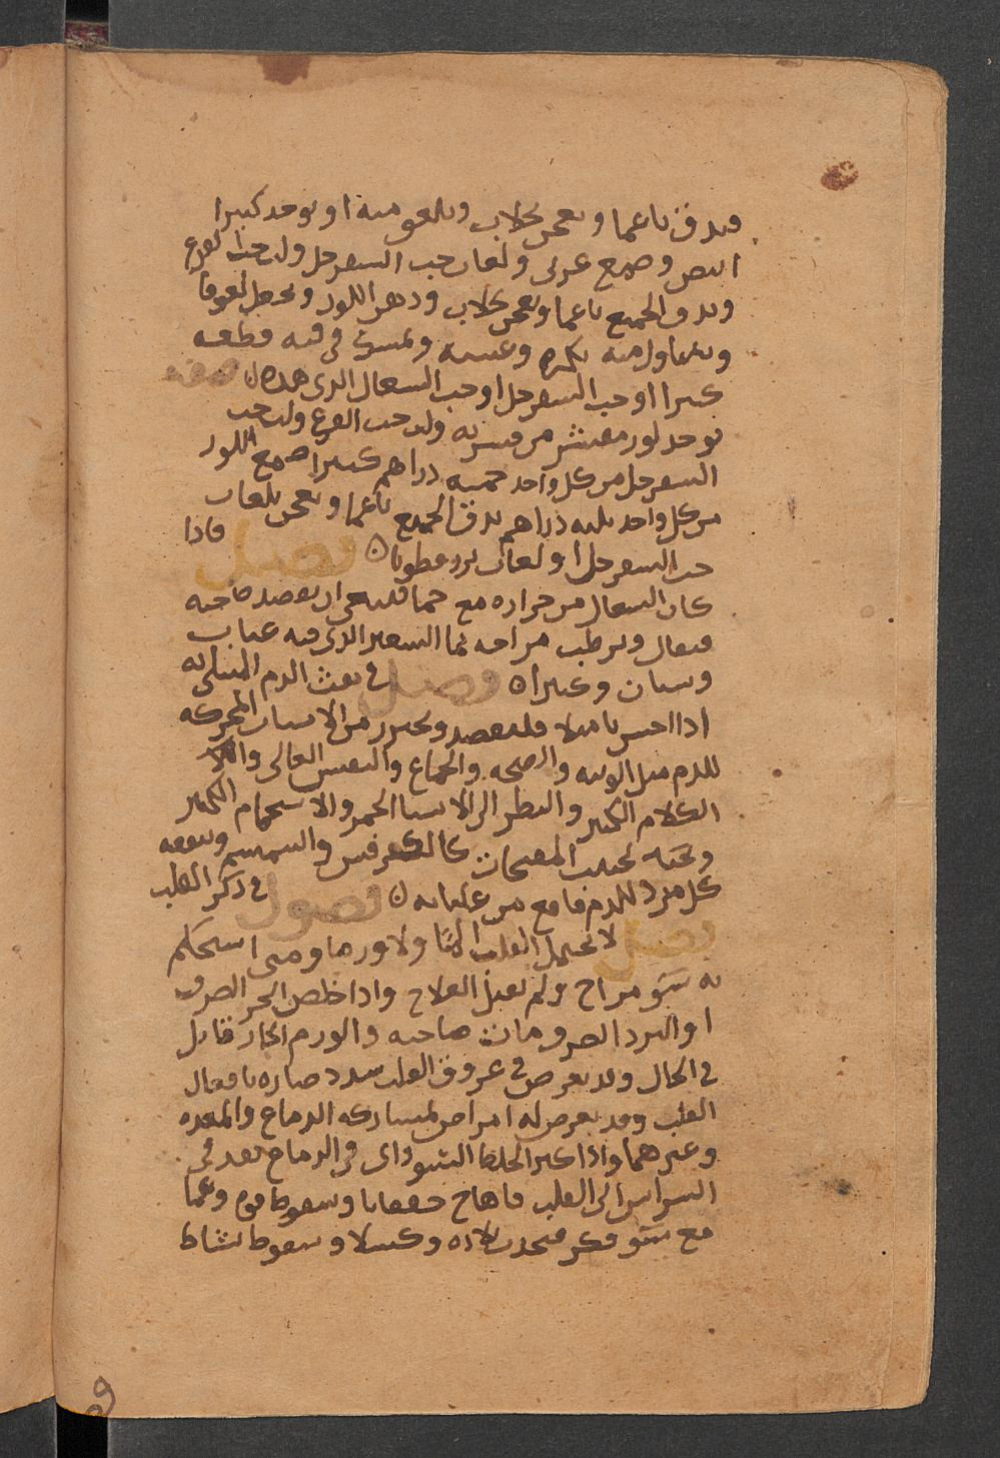 ويدق ناعما ويعجن بجلاب ويلعق منه او يوخذ كثيرا
البيض وصمغ عربى ولعاب حب السفرجل ولب حب القرع
ويدق الجميع ناعما ويعجن بجلاب ودهن اللوز ويجعل لعوقا
ويتناول منه بكره وعشية ويمسك فى فيه قطعه
كثيرا او حب السفرجل او حب السعال الذى هذه صفته
يوخذ لوز مقشر من قشريه ولب حب القرع ولب حب
السفرجل من كل واحد خمسه دراهم كثيرا صمع اللوز
من كل واحد ثلثه دراهم يدق الجميع ناعما ويعجن بلعاب
حب السفرجل او لعاب بزر قطونا فصل فاذا
كان السعال من حراره مع حما فينبغى ان يفصد صاحبه
ويرطب مزاجه بما الشعير الذى فيه عناب
وسبستان وكثيرا فصل فى نفث الدم
اذا احس بامتلا فليفصد ويحترز من الاسباب المحركه
للدم مثل الوثبه والصيحه والجماع والنفس العالى
الكلام الكثير والنظر الى الاشيا الحمر والاستحمام الكثير
ويجتنب المفتحات كالكرفس والسمسم وينفعه
كل مبرد للدم قامع من غليانه فصول فى ذكر القلب
فصل لا يحتمل القلب الما ولا ورما ومتى استحكم
به سو مزاج لم يقبل العلاج واذا خلص الحر الصرف
او البرد الصرف مات صاحبه والورم الحار قاتل
فى الحال وقد يعرض فى عروق القلب سدد ضاره بافعال
القلب وقد يعرض له امراض لمشاركه الدماغ والمعده
وغيرهما واذا كثر الخلط السوداى فى الدماغ نفد فى
الشراين الى القلب فاهاج خفقانا وسقوط قوه وغما
مع سو فكر فيحدث بلاده وكسلا وسقوط نشاط